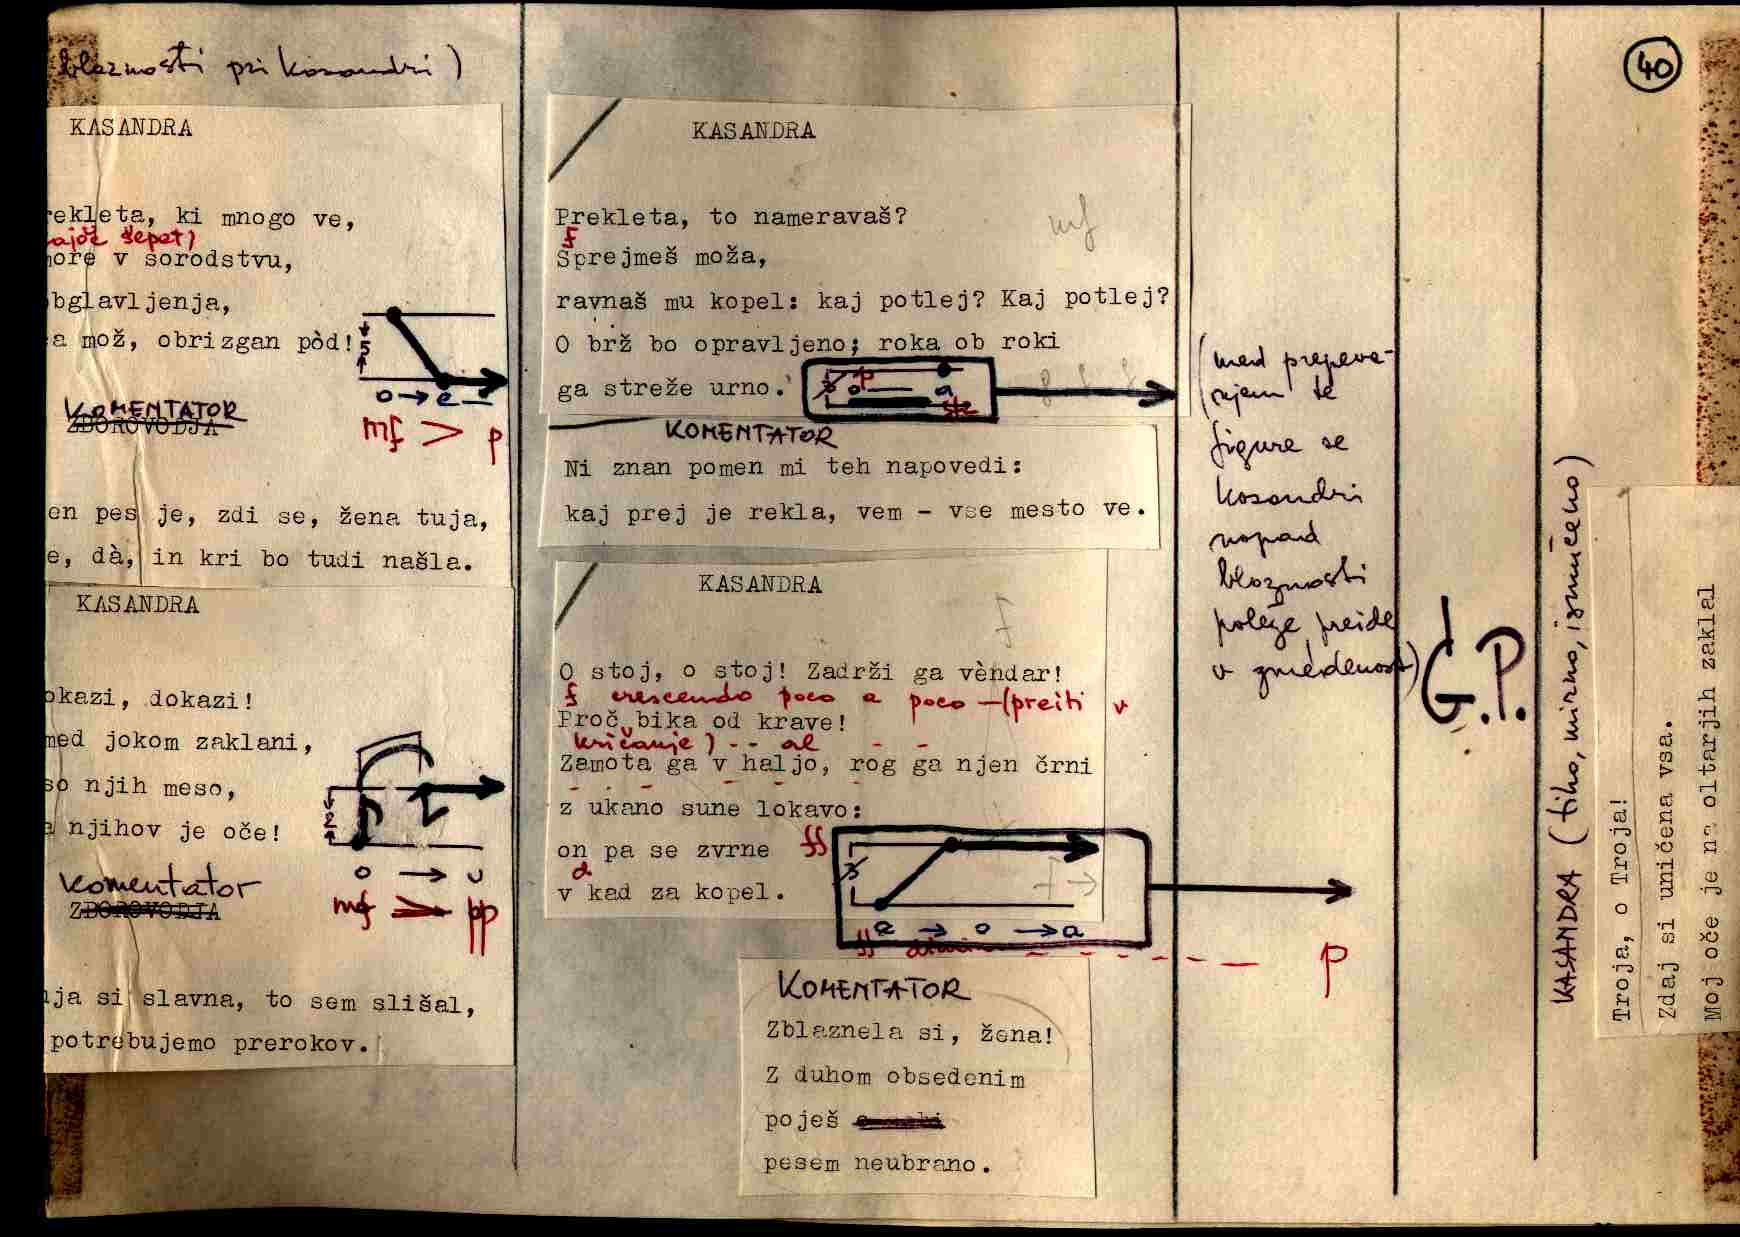 blaznosti pri Kasandri)
KASANDRA
rekleta, ki mnogo ve,
šepet)
more v sorodstvu,
bglavljenja,
a mož, obrizgan pòd!
5
o → e —
mf > p
KOMENTATOR
ZBOROVODJA
en pes je, zdi se, žena tuja,
e, dà, in kri bo tudi našla.
KASANDRA
okazi, dokazi!
med jokom zaklani,
so njih meso,
njihov je oče!
2
o → u
mf > pp
Komentator
ZBOROVODJA
ja si slavna, to sem slišal,
potrebujemo prerokov.
KASANDRA
Prekleta, to nameravaš?
mf
f
Sprejmeš moža,
ravnaš mu kopel: kaj potlej? Kaj potlej?
O brž bo opravljeno; roka ob roki
ga streže urno.
p
o — a
KOMENTATOR
Ni znan pomen mi teh napovedi:
kaj prej je rekla, vem - vse mesto ve.
KASANDRA
f
O stoj, o stoj! Zadrži ga vèndar!
f crescendo poco a poco — (preiti v
Proč bika od krave!
kričanje) -- al - -
Zamota ga v haljo, rog ga njen črni
z ukano sune lokavo:
on pa se zvrne ff
v kad za kopel.
a → o → a
ff dimin. - - - - - p
KOMENTATOR
Zblaznela si, žena!
Z duhom obsedenim
poješ
pesem neubrano.
(med prepeva-
njem te
figure se
Kasandri
napad
blaznosti
poleže, preide
v zmedenost)
G.P.
40
KASANDRA (tiho, mirno, izmučeno)
Troja, o Troja!
Zdaj si uničena vsa.
Moj oče je na oltarjih zaklal